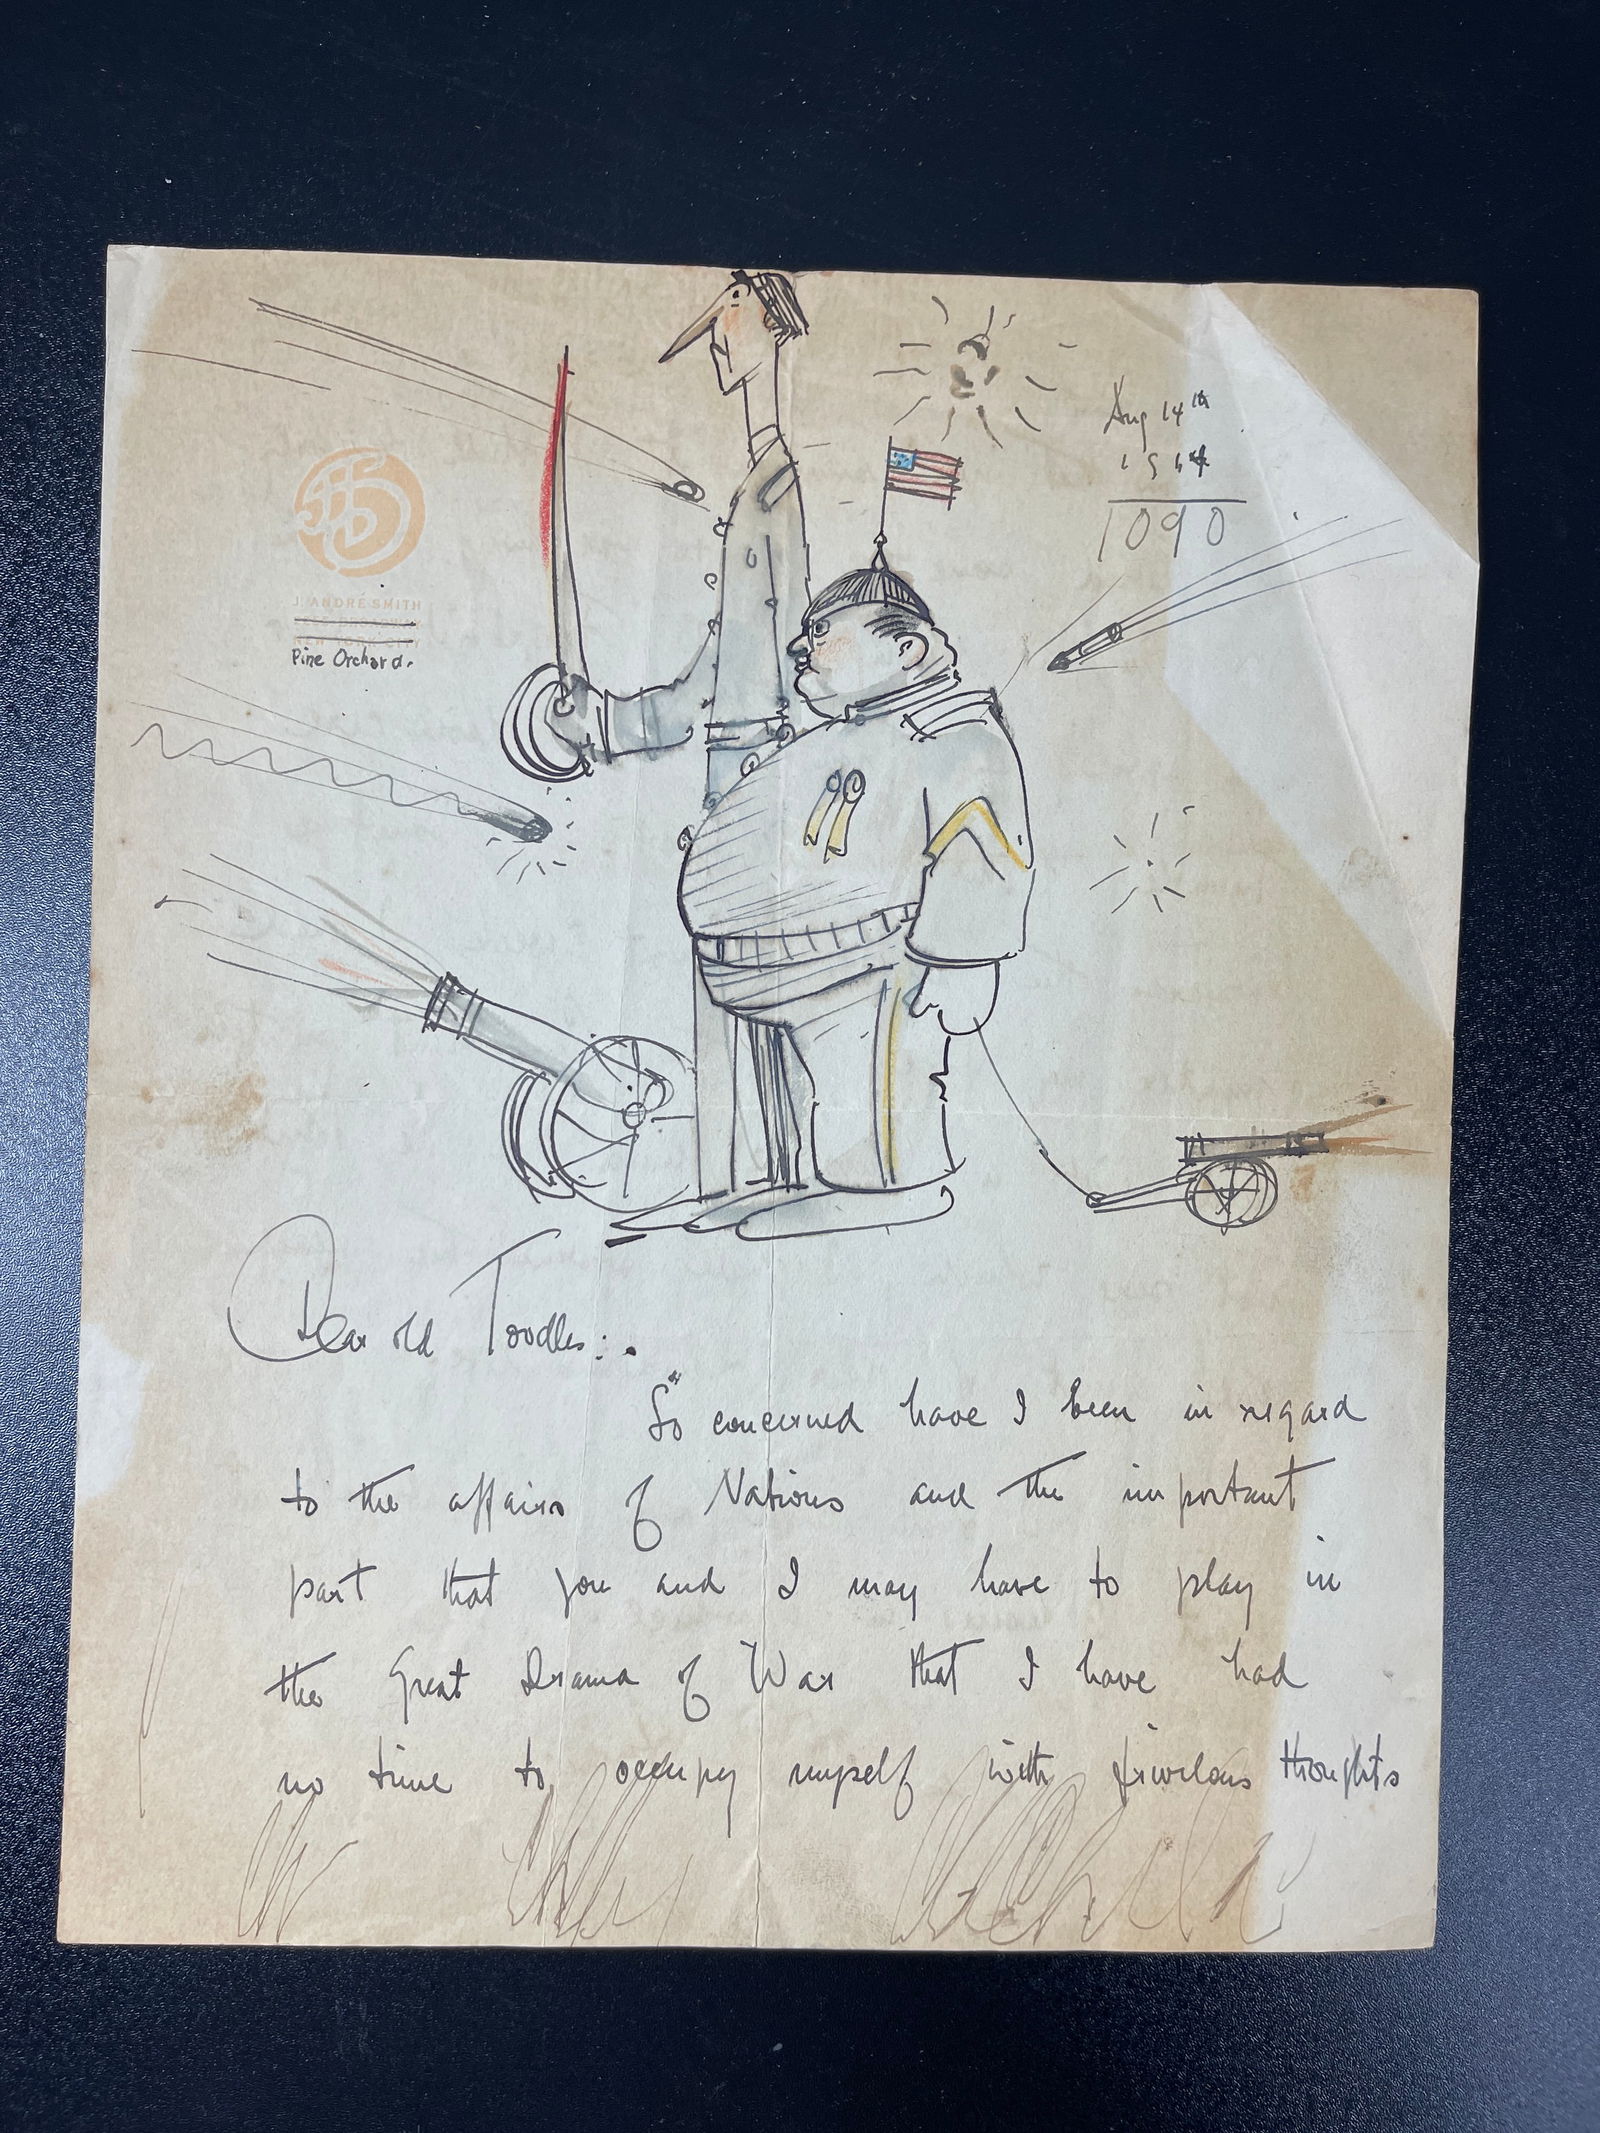 Aug 14th
1914
1090
J. ANDRÉ SMITH
Pine Orchard.
Dear old Toodles:.
So concerned have I been in regard
to the affairs of Nations and the important
part that you and I may have to play in
the Great Drama of War that I have had
no time to occupy myself with frivolous thoughts